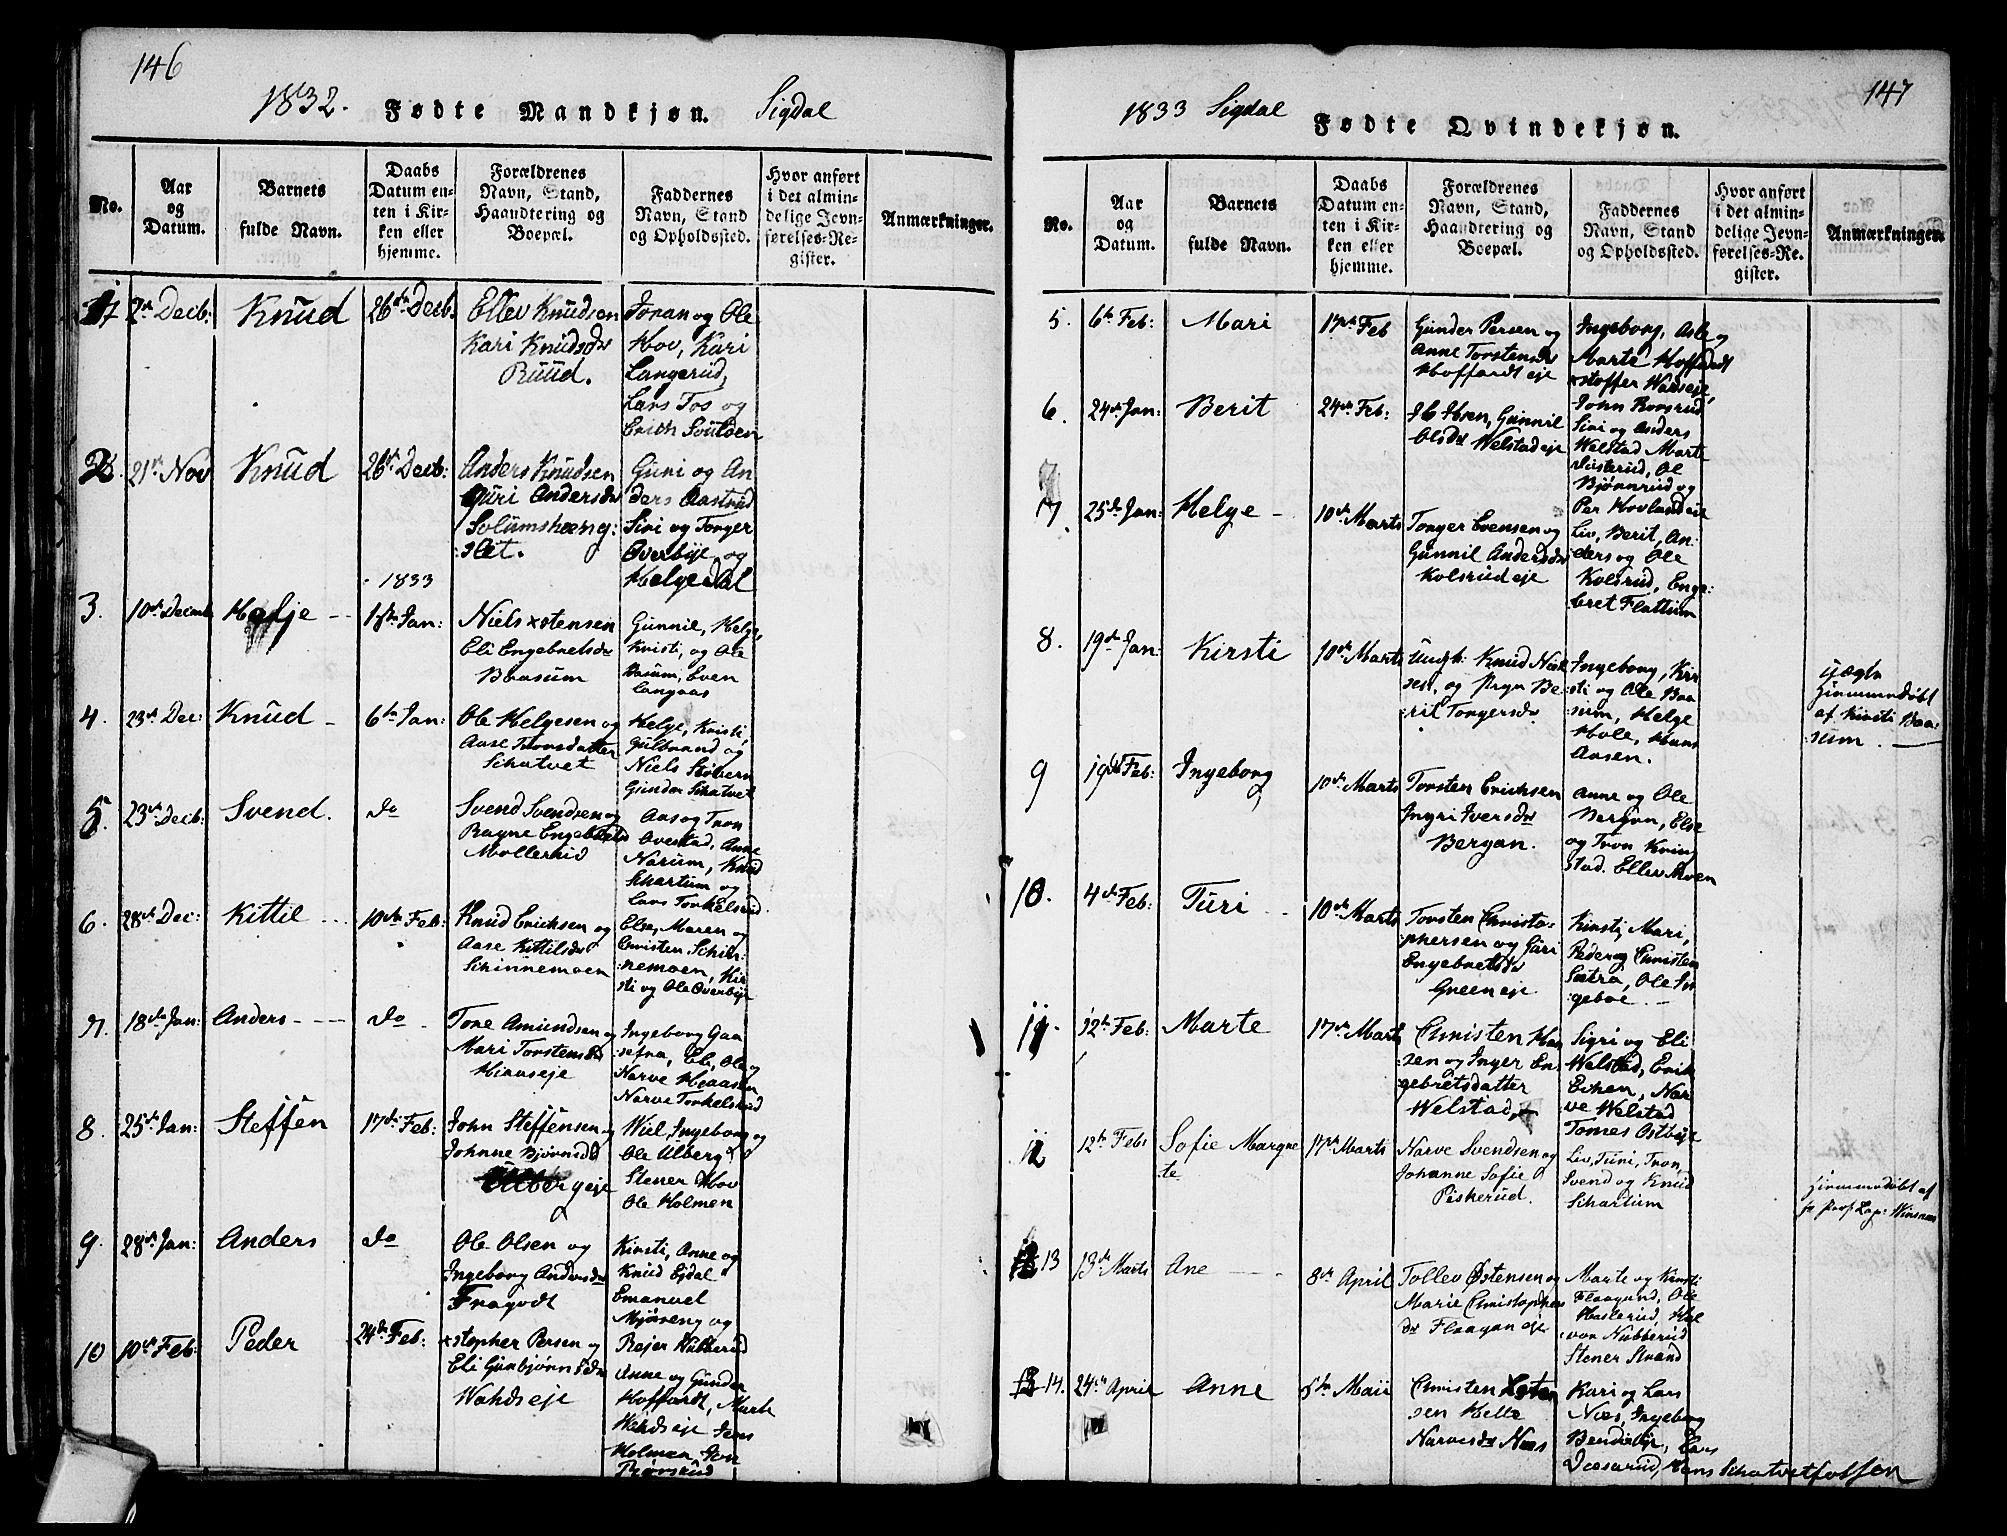 146
1832. Fødte Mandkjøn. Sigdal
No.
Aar
og
Datum.
Barnets
fulde Navn.
Daabs
Datum en-
ten i Kir-
ken eller
hjemme.
Forældrenes
Navn, Stand,
Haandtering og
Boepæl.
Faddernes
Navn, Stand
og Opholdssted.
Hvor anført
i det almin-
delige Jevn-
førelses-Re-
gister.
Anmærkninger.
2de Decb:
Knud
26de Decb.
Ellev Knudsen
Kari Knudsdr
Ruud.
Joran og Ole
Hov, Kari
Langerud,
Lars Tos og
Erich Soulsen
2.
21de Nov
Knud
26de Decb:
Anders Knudsen
Guri Andersdr
Solumshæng:
slet.
Guri og An
ders Aastrud
Siri og Torger
Overbÿe, og
Helge Dal
1833
3.
10de Decemb
Helje
1ste Jan:
Niels xstensen
Eli Engebretsdr
Baasum
Gunnil, Helge,
Kristi, og Ole
Basum, Even
Langaas
4.
23de Dec:
Knud
6te Jan:
Ole Helgesen og
Aase Tronsdatter
Schatvet
Helge, Kristi,
Gulbrand og
Niels Stobern
Gunder Schatvet
5.
23de Decb:
Svend.
do
Svend Svendsen og
Ragne Engebretsdr
Mollerud
Aas og Tron
Ovestad, Anne
Narum, Knud
Schartum og
Lars Torkelsrud
6.
28de Dec:
Kittil
10de Feb:
Knud Erichsen og
Aase Kittilsdr
Schinnemoen
Else, Maren og
Christen Schin-
nemoen, Kir-
sti og Ole Overbÿe
7.
18de Jan:
Anders
do
Tore Amundsen og
Mari Torstensdr
Hiaaseje
Ingeborg Gaa
sefra, Eli, Ole og
Narve Hiaasen
Narve Torkelsrud
8.
25de Jan:
Steffen
17de Feb:
John Steffensen og
Johnne Bjørnsdr
Ulbergeje
Ingeborg og
Ole Ulberg
Stener Hov
Ole Holmen
9.
28de Jan:
Anders
do
Ole Olsen og
Ingeborg Andersdr
Fragodt
Kirsti, Anne og
Knud Ejdal
Emanuel
Mjøveng og
Rejer Nubberud
10
10de Feb:
Peder
24de Feb:
xstopher Persen og
Eli Gunbjørnsdr
Wahdseje
Anne og Gunder
Hoffardt, Marte
Wahdseje Jens
Holmen, Jon
Bjørsrud
147
1833 Sigdal Fødte Qvindekjøn.
No.
Aar
og
Datum.
Barnets
fulde Navn.
Daabs
Datum en-
ten i Kir-
ken eller
hjemme.
Forældrenes
Navn, Stand,
Haandtering og
Boepæl.
Faddernes
Navn, Stand
og Opholdssted.
Hvor anført
i det almin-
delige Jevn-
førelses-Re-
gister.
Anmærkninger.
5.
6te Feb:
Mari
17de Feb
Gunder Persen og
Anne Torstensdr
Hoffardt eje
Ingeborg, Asle og
Marte Hoffardt
xstoffer Wadseje,
6.
24de Jan:
Berit
24de Feb:
Ib Ibsen, Gunnil
Olsdr Welstad eje
John Rorsrud
Siri og Anders
Welstad Marte
Ole
Bjørnrud og
Per Hovland eje
7.
25de Jan:
Helge
10de Marts
Torger Evensen og
Gunnil Andersdr
Kolsrud eje
Liv, Berit, An-
ders og Ole
Kolsrud, Enge-
bret Flattum
8.
19de Jan:
Kirsti
10de Marts
Ungk: Knud Niel
sen, og Pige Be-
rit Torgersdr.
Ingeborg, Kir-
sti og Ole Baa-
sum, Helge
Hole, Hans
Aasen.
Uægte
Hjemmedøbt
af Kirsti Baa-
sum.
9
19de Feb:
Ingeborg
10de Marts
Torsten Erichsen
Ingri Iversdr
Bergan.
Anne og Ole
Bergan, Else
og Tron Kving
stad. Ellev Moen
10.
4de Feb:
Turi
10de Marts
Torsten Christo-
phersen og Guri
Engebretsdr
Green eje
Kirsti, Mari,
Peder og Christen
Sætra, Ole In-
geboe.
11.
12te Feb:
Marte
17de Marts
Christen Han
sen og Inger En-
gebretsdatter
Welstad,
Sigri og Eli
Welstad, Erik
Eken, Nar
ve Welstad
Tomes Ostbÿe
12
12te Feb:
Sofie Margre
te
17de Marts
Narve Svendsen og
Johanne Sofie
Piskerud.
Liv, Turi, Tron,
Svend og Knud
Schartum
Hjemmedøbt af
Hr Prof Cap: Winsnes
13
13de Marts
Ane
8de April
Tollev Østensen og
Marie Christophers
dr Flaagan eje
Marte og Kirsti
Flaagund, Ole
Haslerud, Hal
vor Nubberud
Stener Strand
14.
24de April
Anne
5te Maii
Christen Xsten
sen Helle
Narvesdr Næs
Kari og Lars
Næs, Ingeborg
Bendiksbÿe, Lars
Schatvetfossen